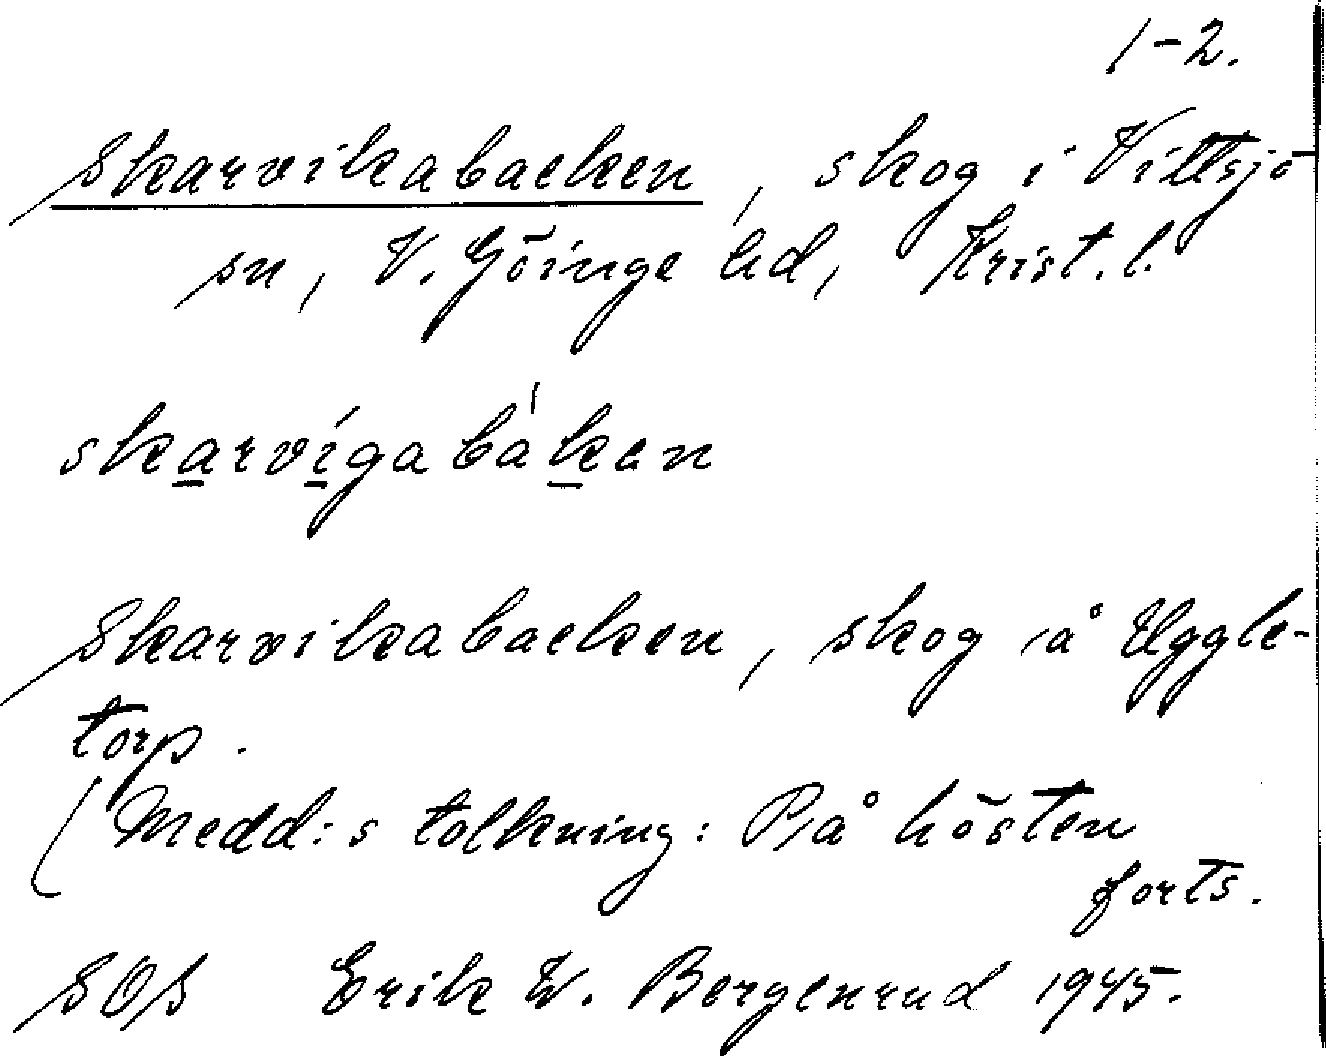 1-2.
Skarvikabacken, skog i Vittsjö
sn, V. Göinge hd, Krist. l.
skarvígabákan
Skarvikabacken, skog å Uggle-
torp.
(Medd:s tolkning: På hösten
forts.
SOS Erik W. Bergenrud 1945.